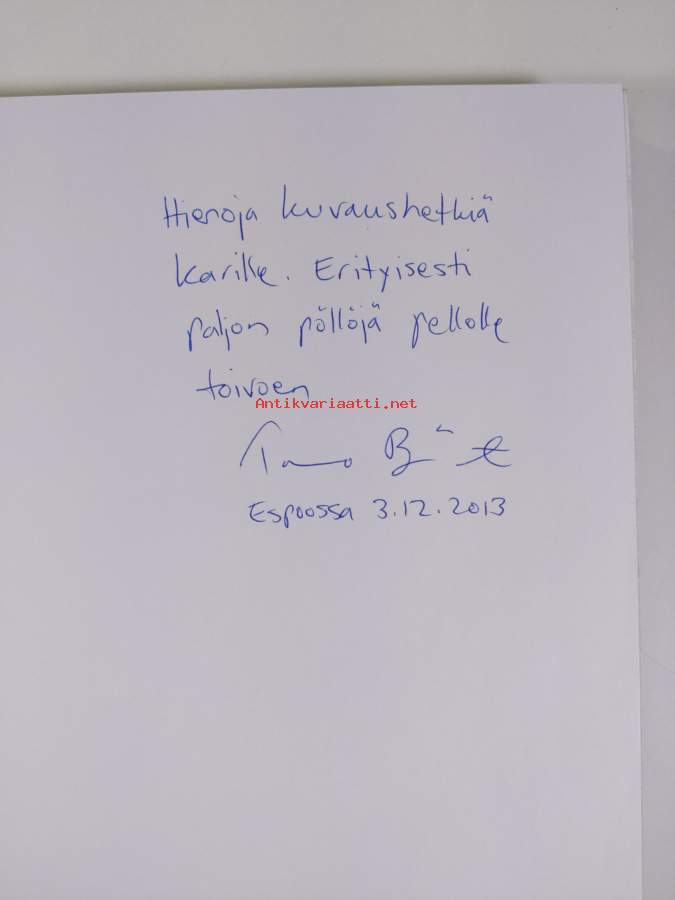 Hienoja kuvaushetkiä
Karille. Erityisesti
paljon pöllöjä pellolle
toivoen
Antikvariaatti.net
Espoossa 3.12.2013